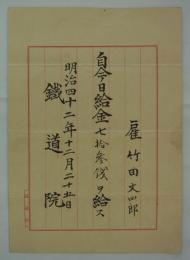 雇 竹田文四郎
自今日給金七拾參錢ヲ給ス
明治四十二年十二月二十五日
鐵道院